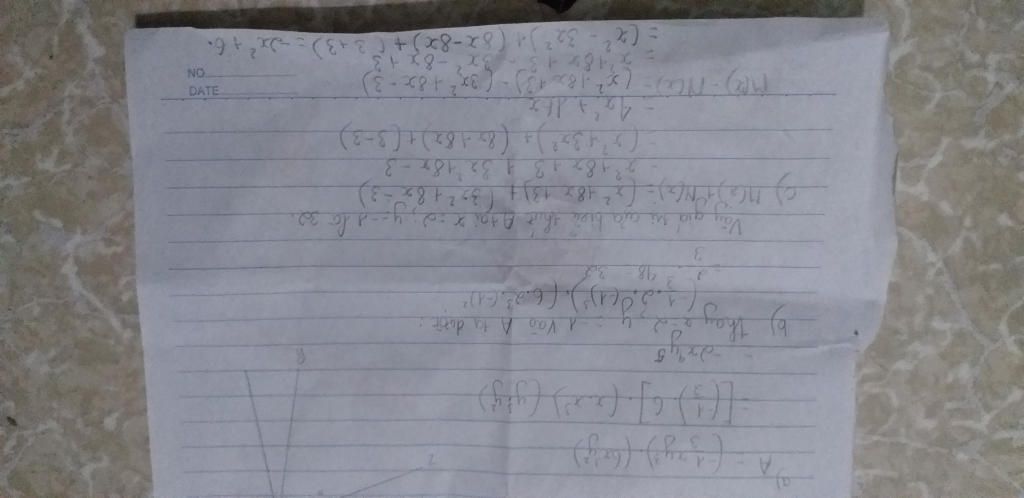 a)
A = (-1/3 xy³).(6x³y²)
= [(-1/3).6].(x.x³)(y³y²)
= -2x⁴y⁵
b) Thay x=2, y=-1 vào A ta được:
(-1/3.2.(-1)³).(6.2³.(-1)²
= 2/3.48 = 32
Vậy giá trị của biểu thức A tại x=2; y=-1 là 32.
c) M(x)+N(x)= (x²+8x+3)+(3x²+8x-3)
= x²+8x+3+3x²+8x-3
= (x²+3x²)+(8x+8x)+(3-3)
= 4x²+16x
M(x)-N(x)= (x²+8x+3)-(3x²+8x-3)
= x²+8x+3-3x²-8x+3
= (x²-3x²)+(8x-8x)+(3+3)=-2x²+6.
NO.
DATE